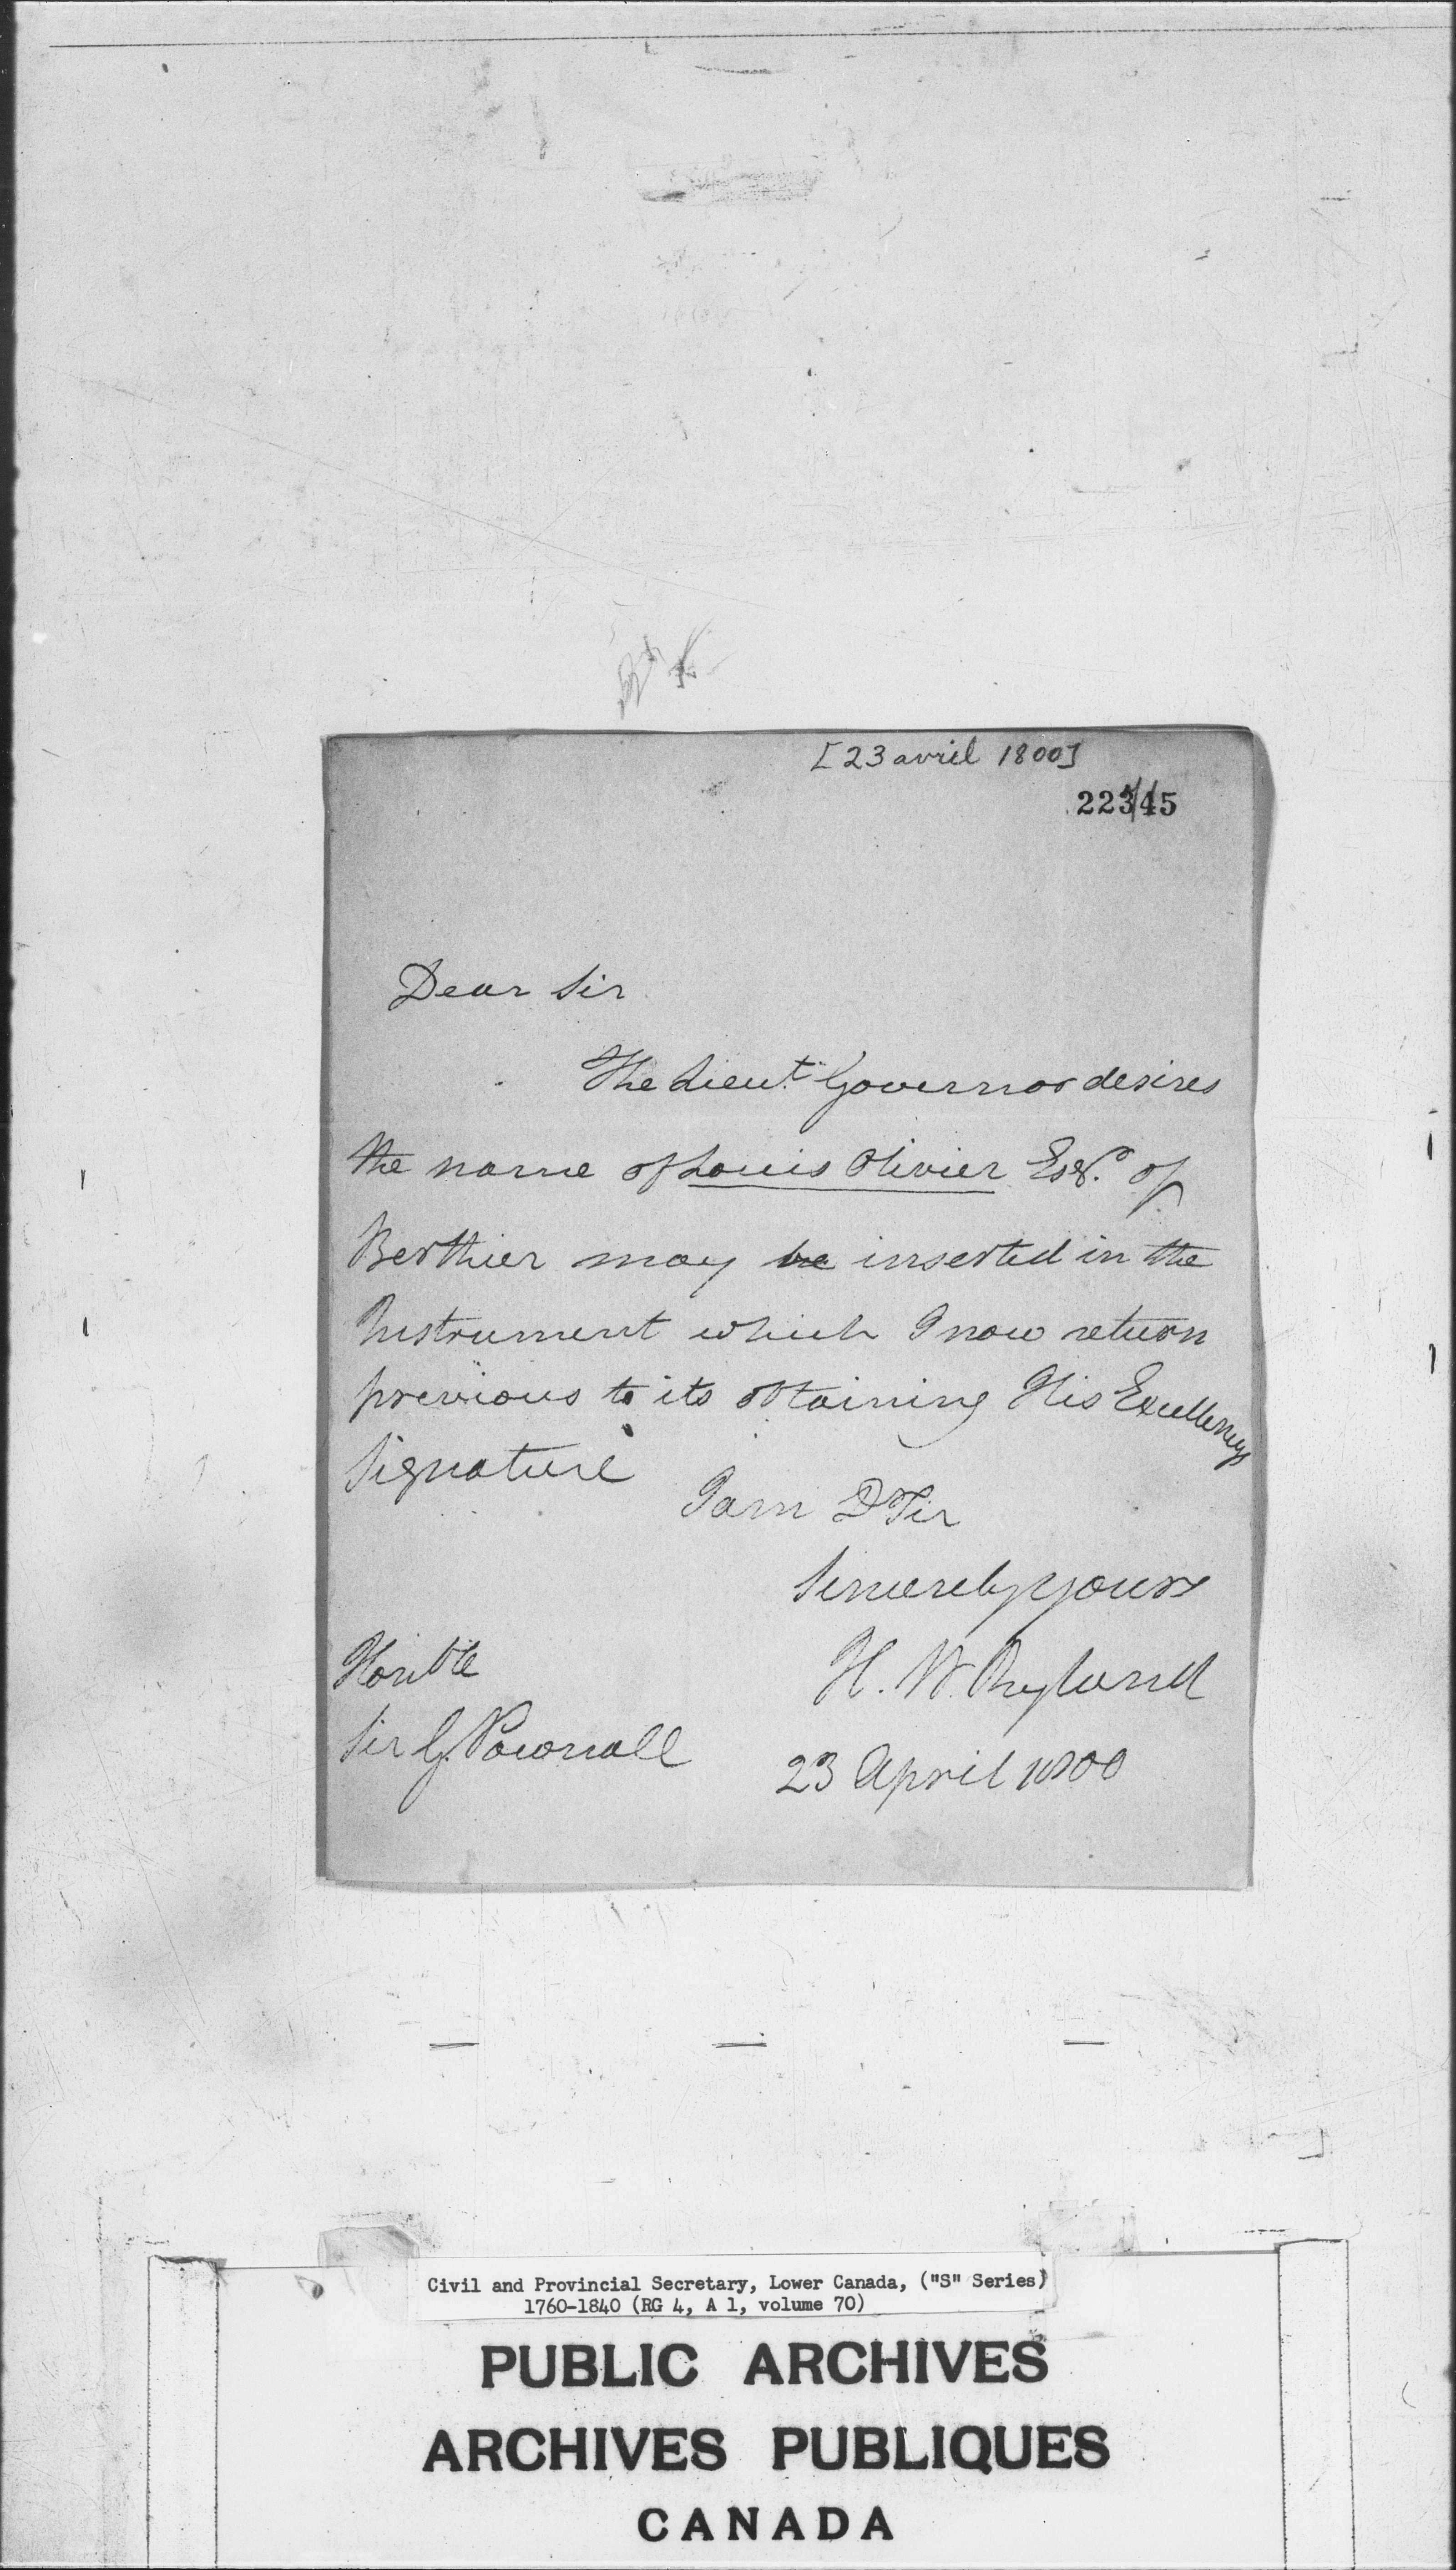 [23 avril 1800]
22345
Dear Sir
The Lieut. Governor desires
the name of Louis Olivier Esqr. of
Berthier may be inserted in the
Instrument which I now return
previous to its obtaining His Excellencys
Signature
I am Dr Sir
Sincerely yours
H. W. Ryland
Honble
Sir G. Pownall
23 April 1800
Civil and Provincial Secretary, Lower Canada, ("S" Series)
1760-1840 (RG 4, A 1, volume 70)
PUBLIC ARCHIVES
ARCHIVES PUBLIQUES
CANADA